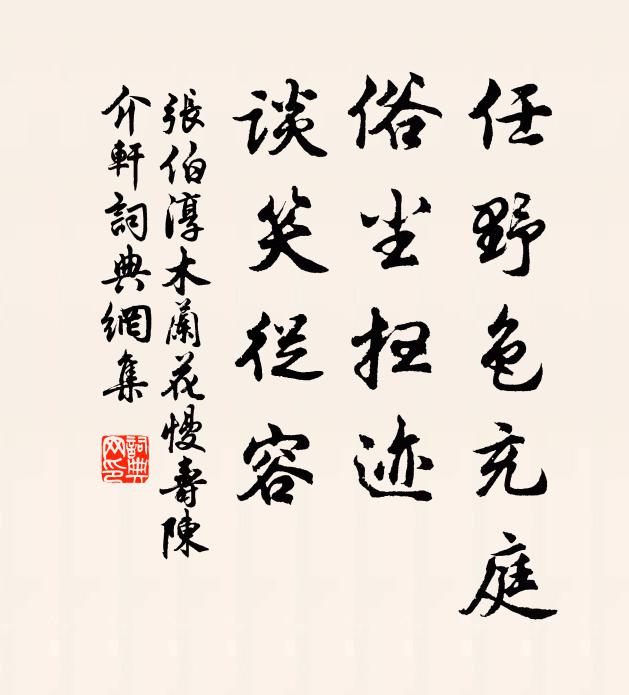 任野色充庭
俗尘扫迹
谈笑從容
張伯淳木蘭花慢壽陳
介軒詞典網集
詞典網印